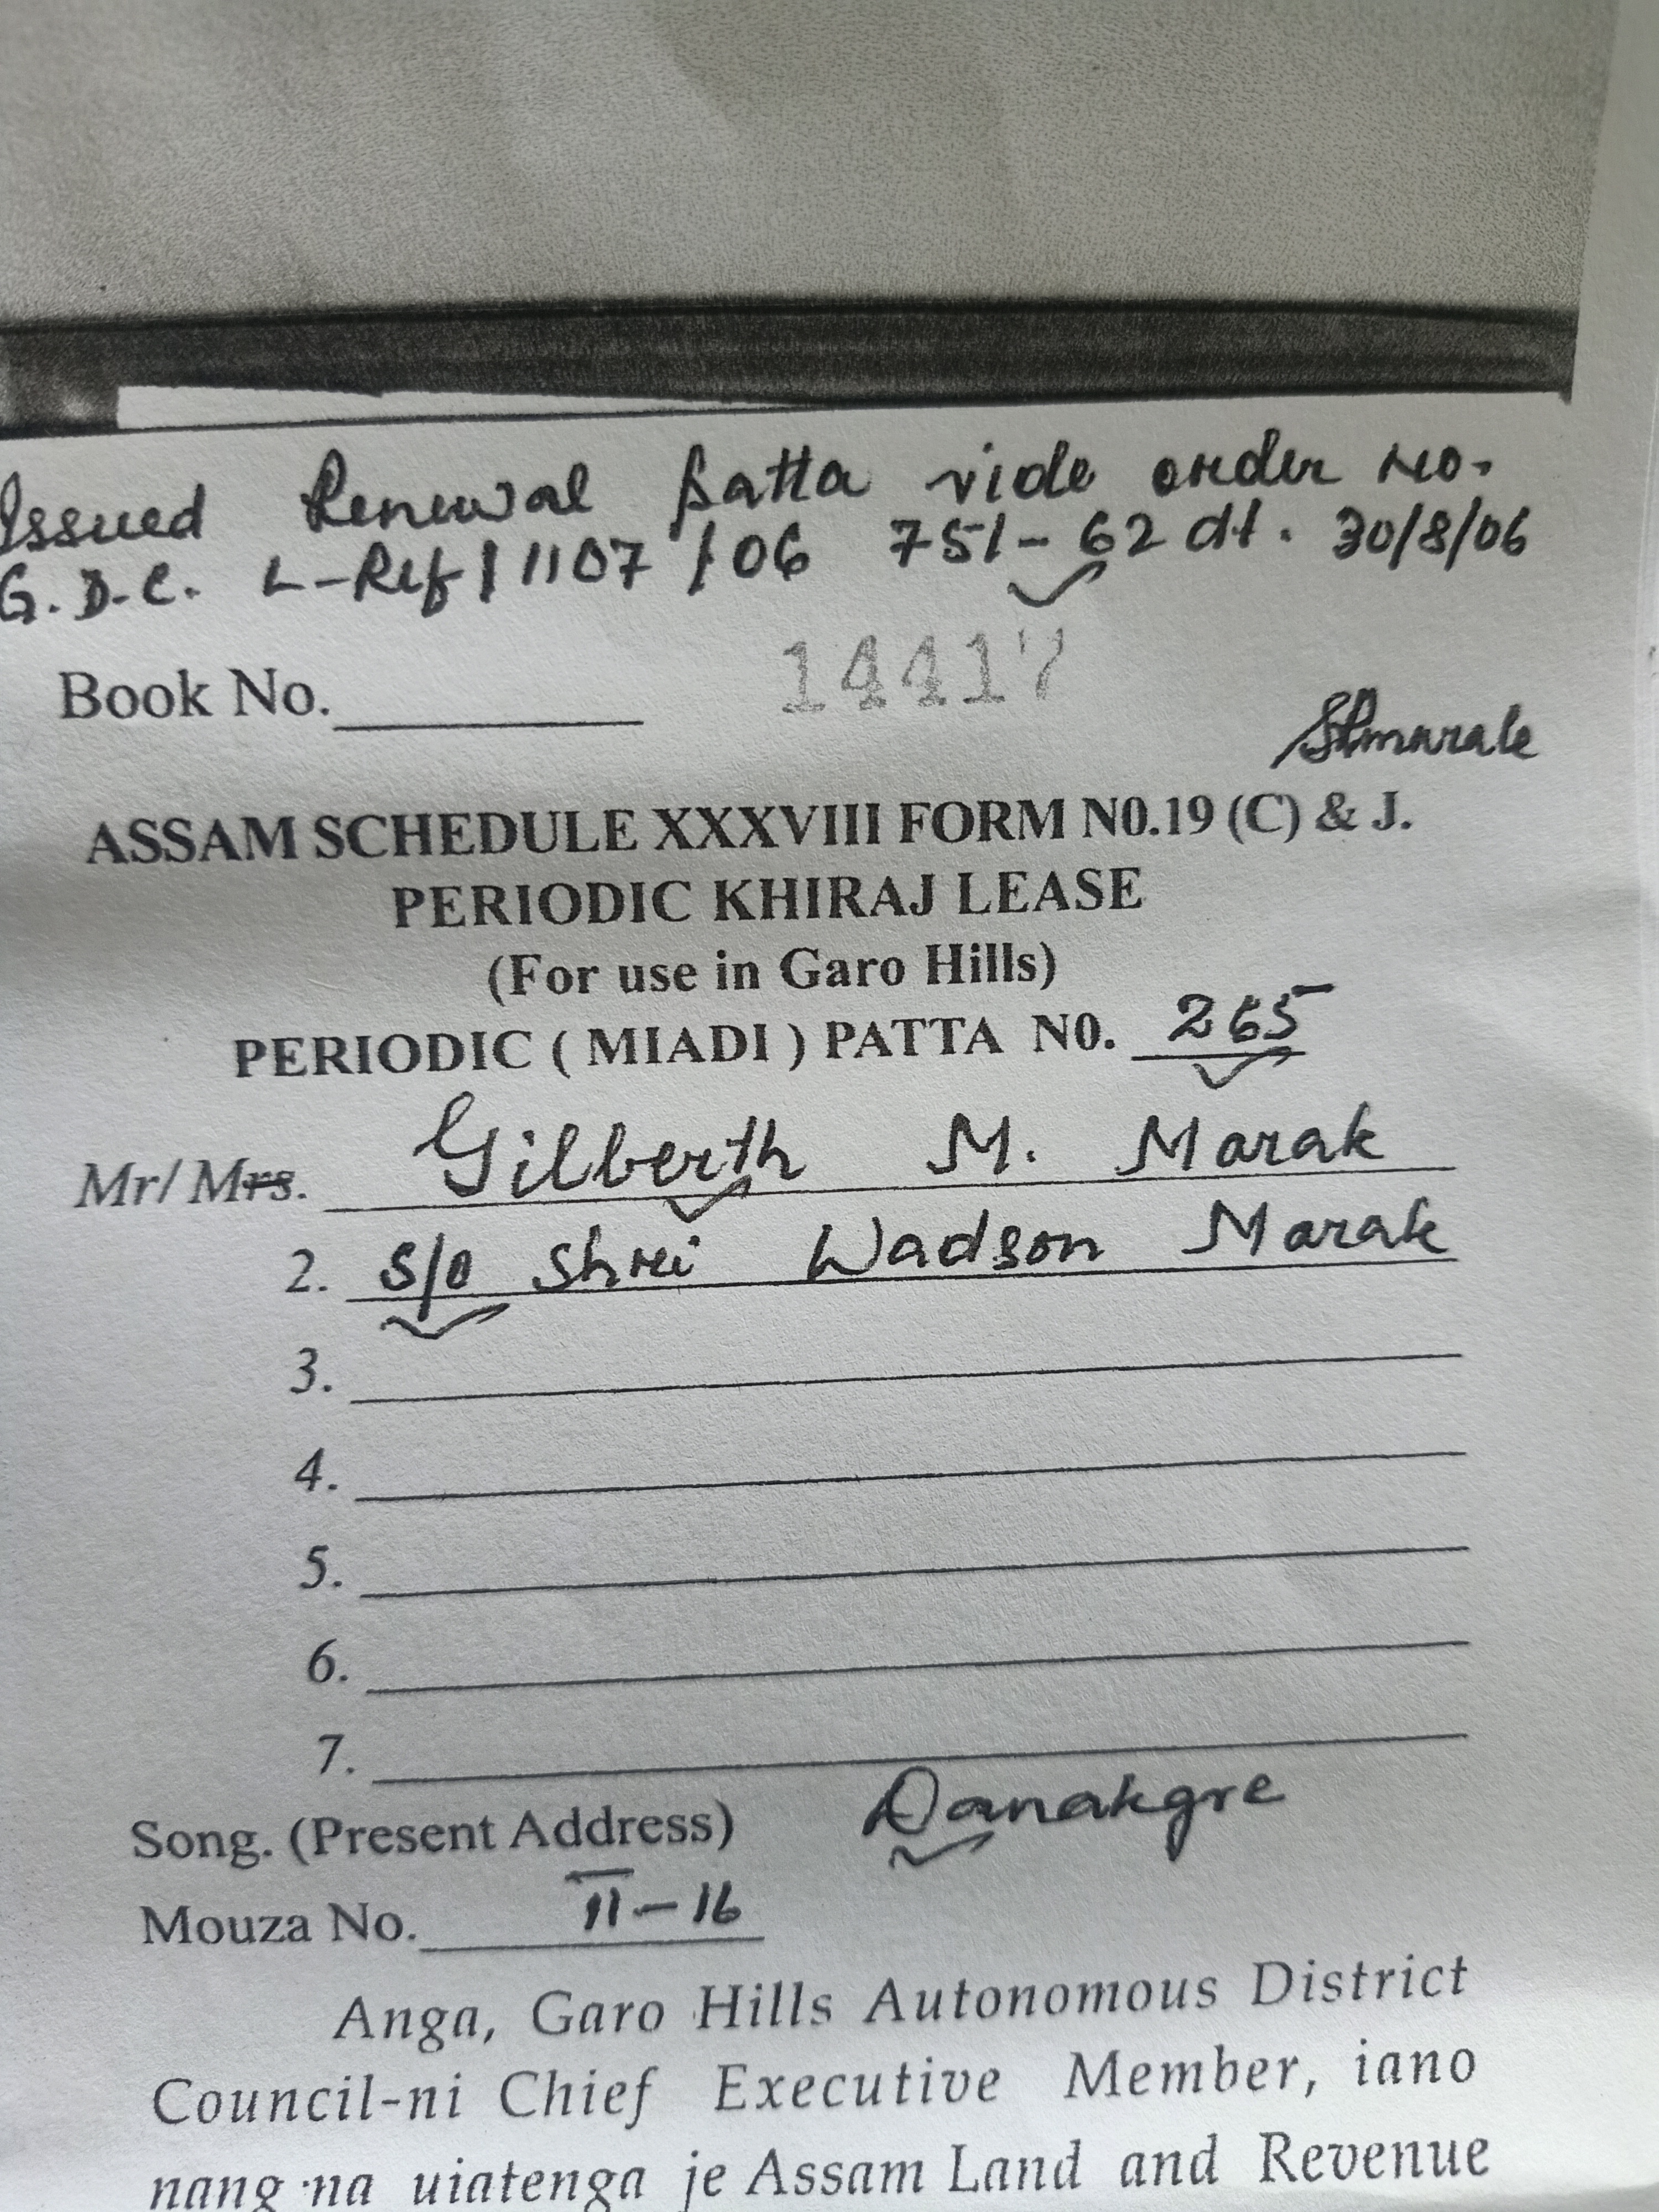 Issued Renewal Patta vide order No.
G.D.C. L-Ref/1107/06 751-62 dt. 30/8/06
Book No. 14417
ASSAM SCHEDULE XXXVIII FORM N0.19 (C) & J.
PERIODIC KHIRAJ LEASE
(For use in Garo Hills)
PERIODIC ( MIADI ) PATTA N0. 265
Mr/ Mrs. Gilberth M. Marak
2. S/o Shri Wadson Marak
3.
4.
5.
6.
7.
Song. (Present Address) Danakgre
Mouza No. II-16
Anga, Garo Hills Autonomous District
Council-ni Chief Executive Member, iano
nang·na uiatenga je Assam Land and Revenue